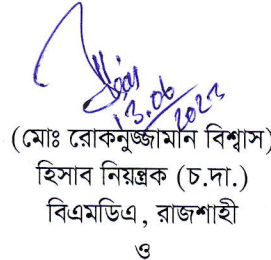 13.06
2023
(মোঃ রোকনুজ্জামান বিশ্বাস)
হিসাব নিয়ন্ত্রক (চ.দা.)
বিএমডিএ, রাজশাহী
ও